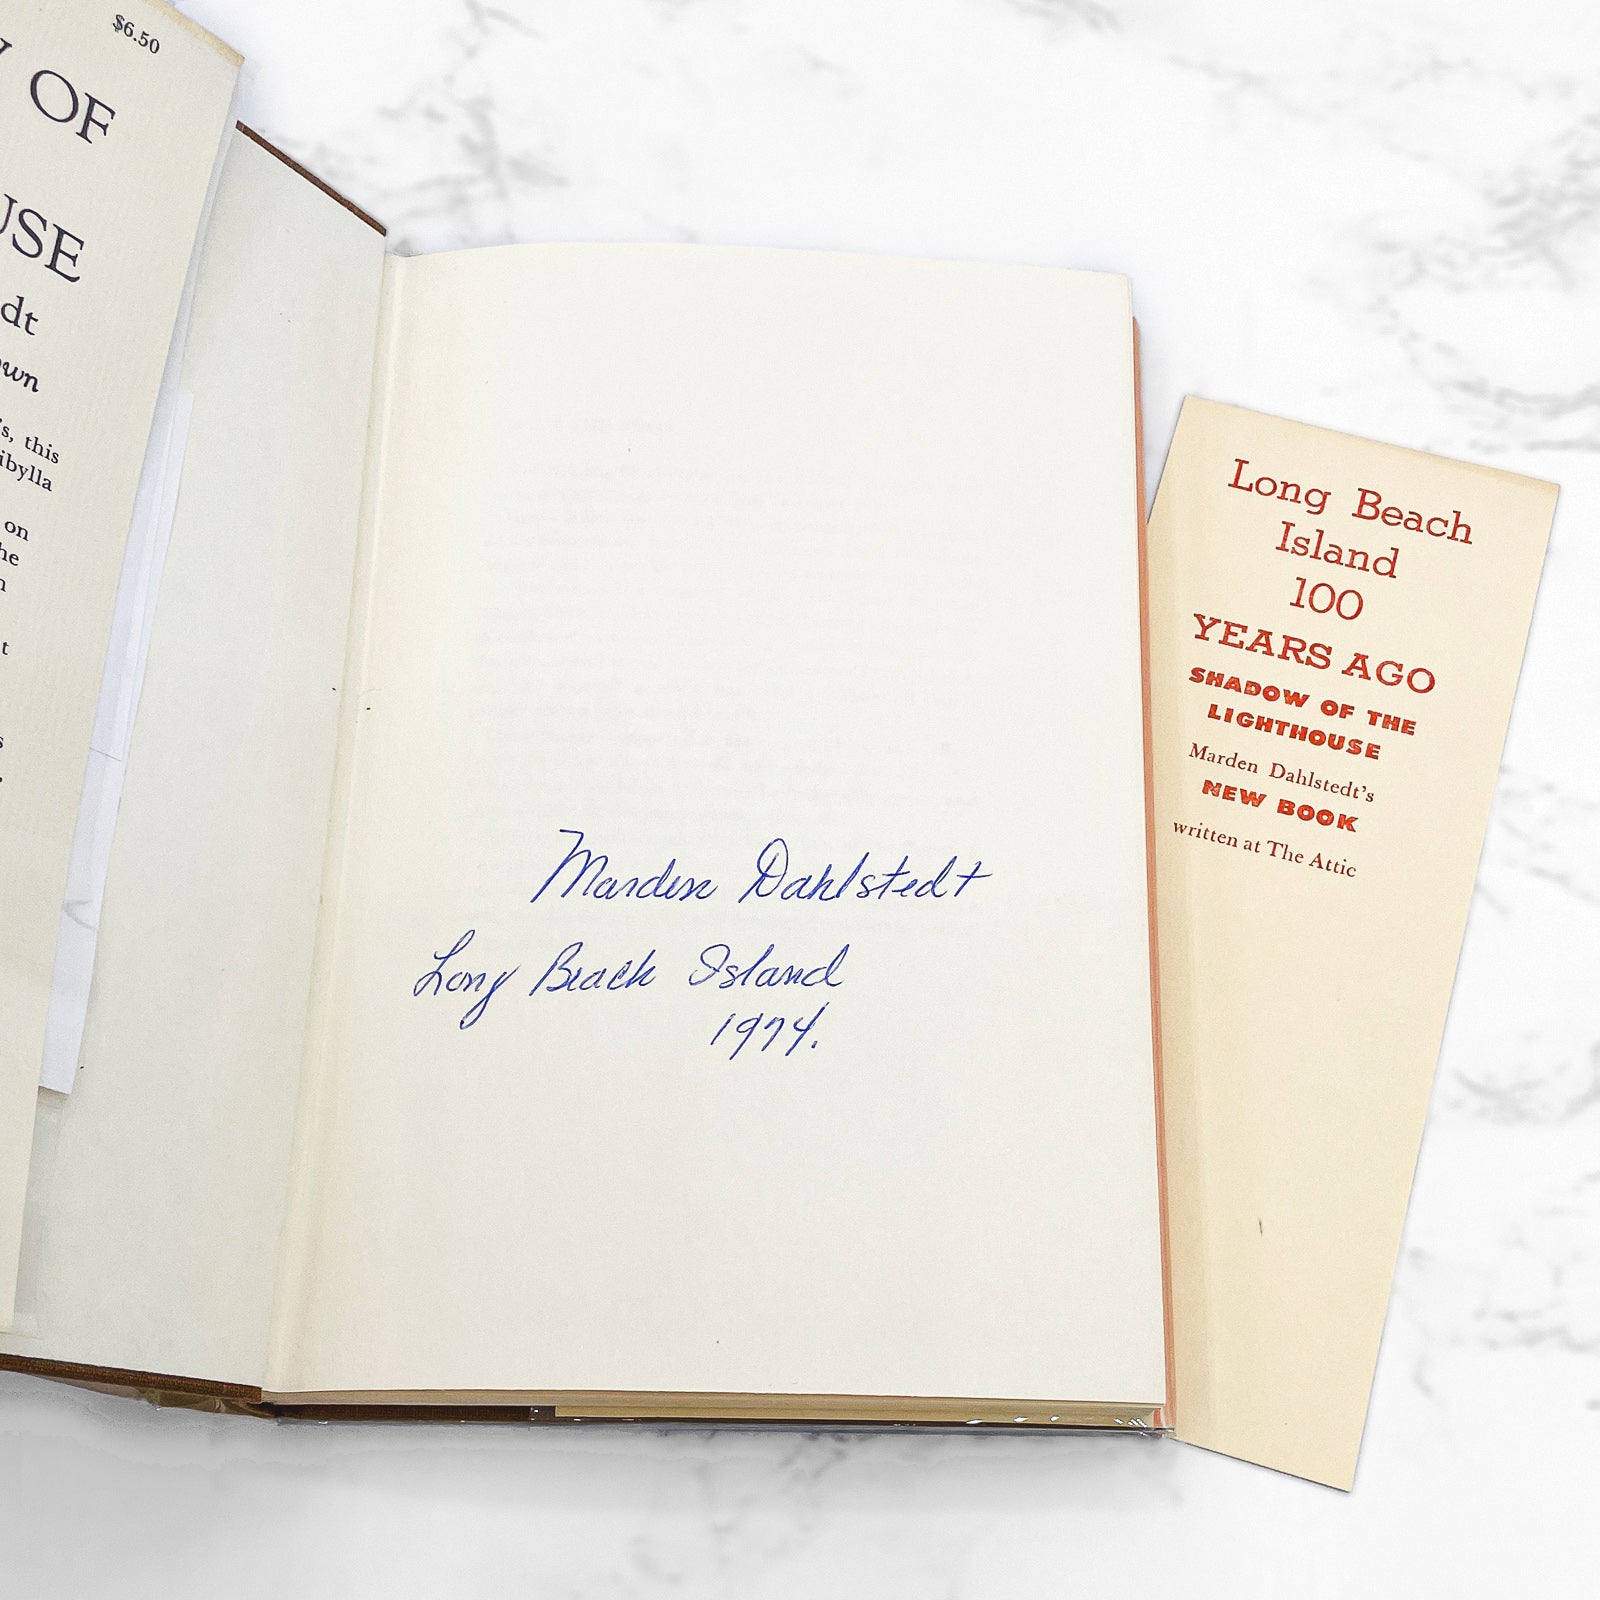 $6.50
OF
USE
dt
own
's, this
ibylla
on
he
t
Marden Dahlstedt
Long Beach Island
1974.
Long Beach
Island
100
YEARS AGO
SHADOW OF THE
LIGHTHOUSE
Marden Dahlstedt's
NEW BOOK
written at The Attic